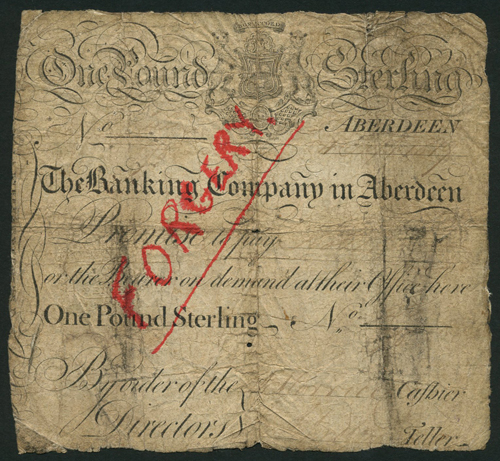 One Pound Sterling
No. ABERDEEN
The Banking Company in Aberdeen
Promise to pay
or the Bearer on demand at their Office here
One Pound Sterling No.
By order of the Cashier
Directors Teller
FORGERY.